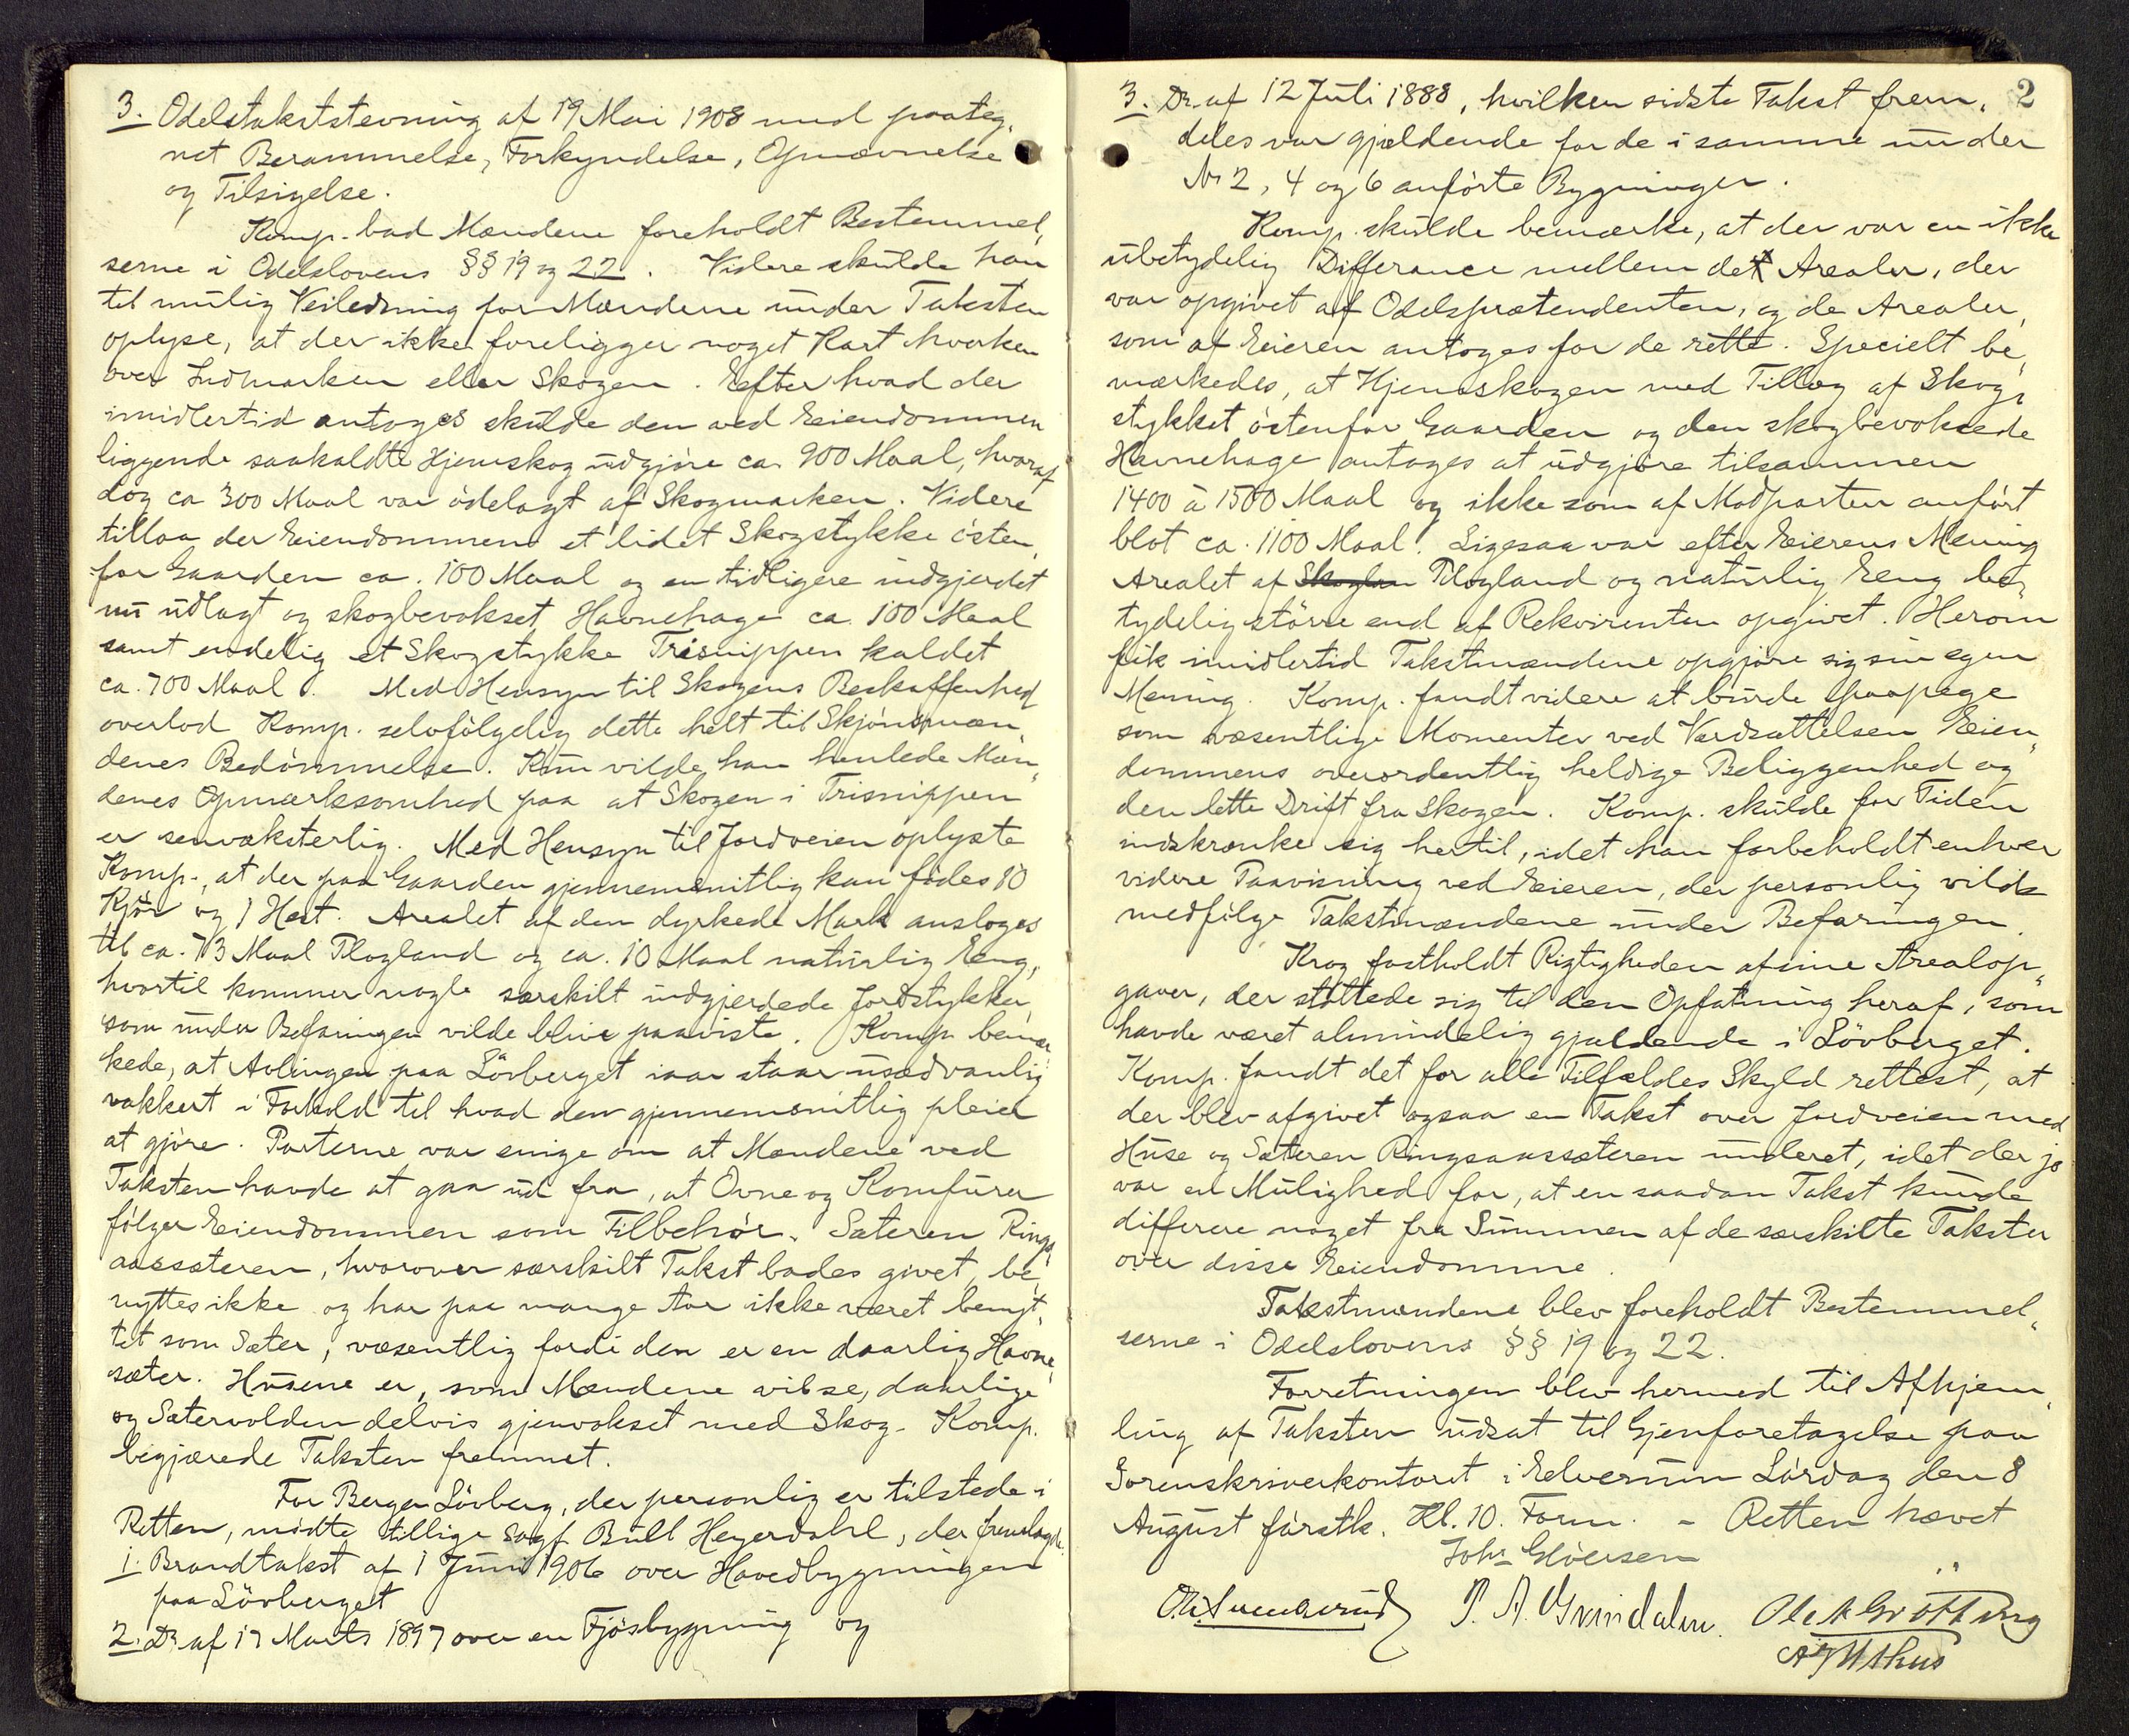 3. Odelstakststevning af 19 Mai 1908 med paateg,
net Berammelse, Forkyndelse, Opnævnelse
og Tilsigelse.
Komp. bad Mændene foreholdt Bestemmel,
serne i Odelslovens §§ 19 og 22. Videre skulde han
til mulig Veiledning for Mændene under Taksten
oplyse, at der ikke foreligger noget Kart hverken
over Indmarken eller Skogen. Efter hvad der
imidlertid antoges skulde den ved Eiendommen
liggende saakaldte Hjemskog udgjøre ca. 900 Maal, hvoraf
dog ca 300 Maal var ødelagt af Skogmarken. Videre
tillaa der Eiendommen et lidet Skogstykke østen,
for Gaarden ca. 100 Maal og en tidligere indgjerdet
nu udlagt og skogbevokset Havnehage ca. 100 Maal
samt endelig et Skogstykke Trisnippen kaldet
ca. 700 Maal. Med Hensyn til Skogens Beskaffenhed
overlod Komp. selvfølgelig dette helt til Skjønsmæn,
denes Bedømmelse. Kun vilde han henlede Mæn,
denes Opmærksomhed paa at Skogen i Trisnippen
er senvæksterlig. Med Hensyn til Jordveien oplyste
Komp., at der paa Gaarden gjennemsnitlig kan fødes 10
Kjør og 1 Hest. Arealet af den dyrkede Mark ansloges
til ca. 73 Maal Plogland og ca. 10 Maal naturlig Eng,
hvortil kommer nogle særskilt indgjerdede Jordstykker,
som under Befaringen vilde blive paaviste. Komp. bemær
kede, at Avlingen paa Løvberget iaar staar usædvanlig
vakkert i Forhold til hvad den gjennemsnitlig pleier
at gjøre. Parterne var enige om at Mændene ved
Taksten havde at gaa ud fra, at Ovne og Komfurer
følger Eiendommen som Tilbehør. Sæteren Rings,
aassæteren, hvorover særskilt Takst bades givet, be,
nyttes ikke og har paa mange Aar ikke været benyt,
tet som Sæter, væsentlig fordi den er en daarlig Havne,
sæter. Husene er, som Mændene vil se, daarlige
og Sætervolden delvis gjenvokset med Skog. Komp.
begjærede Taksten fremmet.
For Berger Løvberg, der personlig er tilstede i
Retten, mødte tillige Sagf. Bull Heyerdahl, der fremlagde
1. Brandtakst af 1 Juni 1906 over Hovedbygningen
paa Løvberget
2. Do af 17 Marts 1897 over en Fjøsbygning og
2
3. Do af 12 Juli 1888, hvilken sidste Takst frem,
deles var gjældende for de i samme under
No 2, 4 og 6 anførte Bygninger.
Komp. skulde bemærke, at der var en ikke
ubetydelig Differance mellem de Arealer, der
var opgivet af Odelsprætendenten, og de Arealer,
som af Eieren antoges for de rette. Specielt be,
mærkedes, at Hjemskogen med Tillæg af Skog,
stykket østenfor Gaarden og den skogbevoksede
Havnehage antages at udgjøre tilsammen
1400 à 1500 Maal og ikke som af Modparten anført
blot ca. 1100 Maal. Ligesaa var efter Eierens Mening
Arealet af Plogland og naturlig Eng be,
tydelig større end af Rekvirenten opgivet. Herom
fik imidlertid Takstmændene opgjøre sig sin egen
Mening. Komp. fandt videre at burde paapege
som væsentlige Momenter ved Værdsættelsen Eien,
dommens overordentlig heldige Beliggenhed og
den lette Drift fra Skogen. Komp. skulde for Tiden
indskrænke sig hertil, idet han forbeholdt enhver
videre Paavisning ved Eieren, der personlig vilde
medfølge Takstmændene under Befaringen.
Krog fastholdt Rigtigheden af sine Arealop,
gaver, der støttede sig til den Opfatning heraf, som
havde været almindelig gjældende i Løvberget.
Komp. fandt det for alle Tilfældes Skyld rettest, at
der blev afgivet ogsaa en Takst over Jordveien med
Huse og Sæteren Ringsaassæteren underet, idet der jo
var en Mulighed for, at en saadan Takst kunde
differere noget fra Summen af de særskilte Takster
over disse Eiendomme.
Takstmændene blev foreholdt Bestemmel,
serne i Odelslovens §§ 19 og 22.
Forretningen blev hermed til Afhjem,
ling af Taksten udsat til Gjenforetagelse paa
Sorenskriverkontoret i Elverum Lørdag den 8
August førstk. Kl. 10. Form. - Retten hævet
Johs Gløersen
P. A. Grindalen. Ole A Grøtting